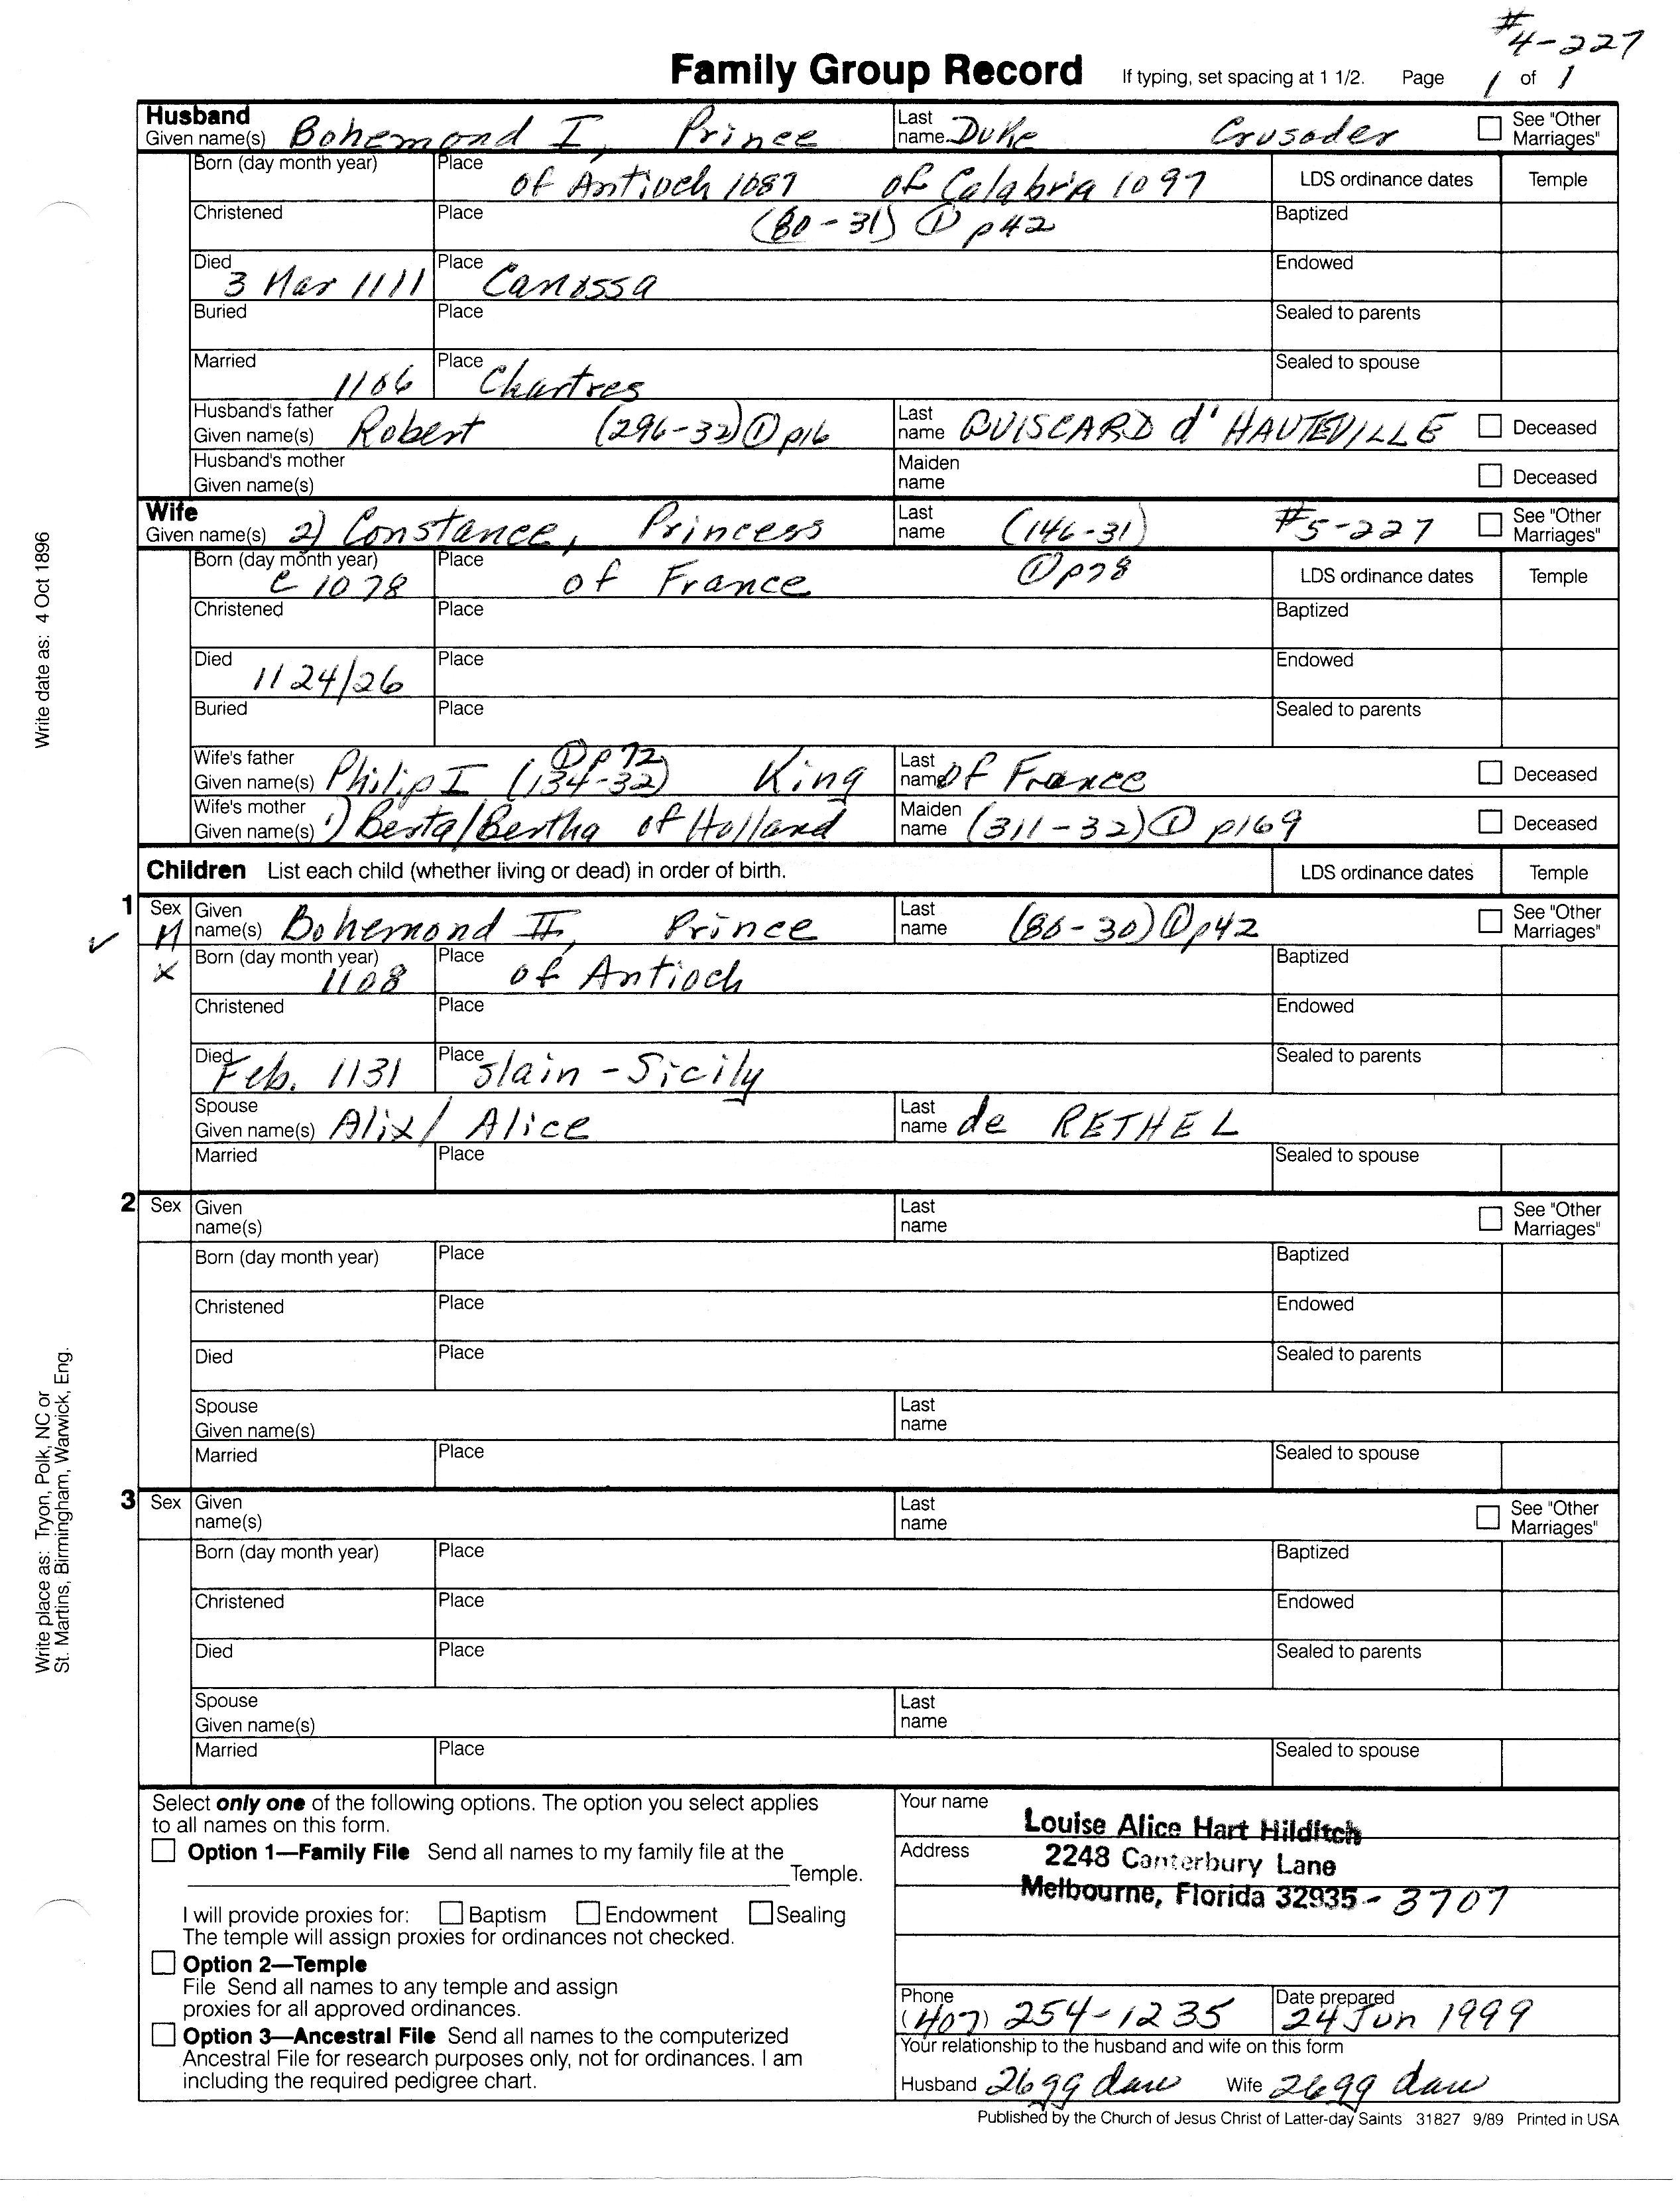 #4-227
Family Group Record If typing, set spacing at 1 1/2. Page 1 of 1
Husband
Given name(s) Bohemond I, Prince Last name Duke Crusader See "Other Marriages"
Born (day month year) Place of Antioch 1087 of Calabria 1097 LDS ordinance dates Temple
Christened Place (80-31) ① p42 Baptized
Died 3 Mar 1111 Place Canossa Endowed
Buried Place Sealed to parents
Married 1106 Place Chartres Sealed to spouse
Husband's father
Given name(s) Robert (296-32) ① p16 Last name QUISCARD d' HAUTEVILLE Deceased
Husband's mother
Given name(s) Maiden name Deceased
Wife
Given name(s) 2) Constance, Princess Last name (146-31) #5-227 See "Other Marriages"
Born (day month year) c 1078 Place of France ① p78 LDS ordinance dates Temple
Christened Place Baptized
Died 1124/26 Place Endowed
Buried Place Sealed to parents
Wife's father
Given name(s) Philip I (134-32) ① p72 King Last name of France Deceased
Wife's mother
Given name(s) 1) Berta/Bertha of Holland Maiden name (311-32) ① p169 Deceased
Children List each child (whether living or dead) in order of birth. LDS ordinance dates Temple
1 Sex M Given name(s) Bohemond II, Prince Last name (80-30) ① p42 See "Other Marriages"
✓ x Born (day month year) 1108 Place of Antioch Baptized
Christened Place Endowed
Died Feb. 1131 Place slain - Sicily Sealed to parents
Spouse
Given name(s) Alix/ Alice Last name de RETHEL
Married Place Sealed to spouse
2 Sex Given name(s) Last name See "Other Marriages"
Born (day month year) Place Baptized
Christened Place Endowed
Died Place Sealed to parents
Spouse
Given name(s) Last name
Married Place Sealed to spouse
3 Sex Given name(s) Last name See "Other Marriages"
Born (day month year) Place Baptized
Christened Place Endowed
Died Place Sealed to parents
Spouse
Given name(s) Last name
Married Place Sealed to spouse
Write date as: 4 Oct 1896
Write place as: Tryon, Polk, NC or
St. Martins, Birmingham, Warwick, Eng.
Select only one of the following options. The option you select applies
to all names on this form.
Option 1—Family File Send all names to my family file at the
Temple.
I will provide proxies for: Baptism Endowment Sealing
The temple will assign proxies for ordinances not checked.
Option 2—Temple
File Send all names to any temple and assign
proxies for all approved ordinances.
Option 3—Ancestral File Send all names to the computerized
Ancestral File for research purposes only, not for ordinances. I am
including the required pedigree chart.
Your name Louise Alice Hart Hilditch
Address 2248 Canterbury Lane
Melbourne, Florida 32935-3707
Phone (407) 254-1235 Date prepared 24 Jun 1999
Your relationship to the husband and wife on this form
Husband 26 gg dau Wife 26 gg dau
Published by the Church of Jesus Christ of Latter-day Saints 31827 9/89 Printed in USA